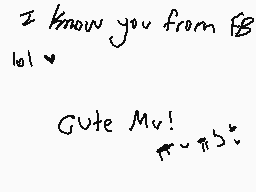 I know you from FB
lol ♥
Cute Mv!